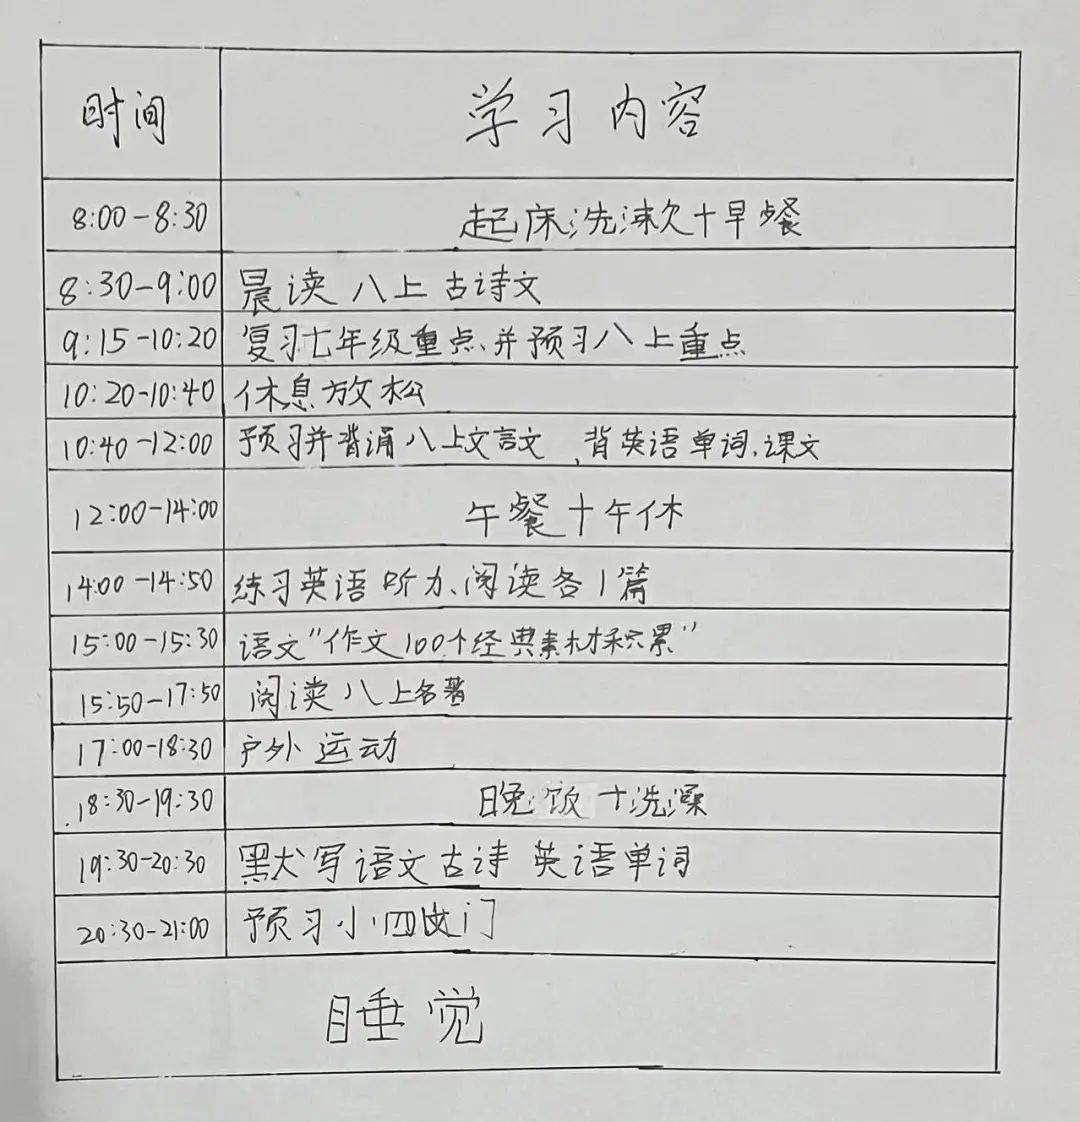 时间 学习内容
8:00-8:30 起床洗漱+早餐
8:30-9:00 晨读 八上 古诗文
9:15-10:20 复习七年级重点、并预习八上重点
10:20-10:40 休息放松
10:40-12:00 预习并背诵八上文言文，背英语单词、课文
12:00-14:00 午餐+午休
14:00-14:50 练习英语听力、阅读各1篇
15:00-15:30 语文"作文100个经典素材积累"
15:50-17:50 阅读八上名著
17:00-18:30 户外运动
18:30-19:30 晚饭+洗澡
19:30-20:30 默写语文古诗 英语单词
20:30-21:00 预习小四门
睡觉